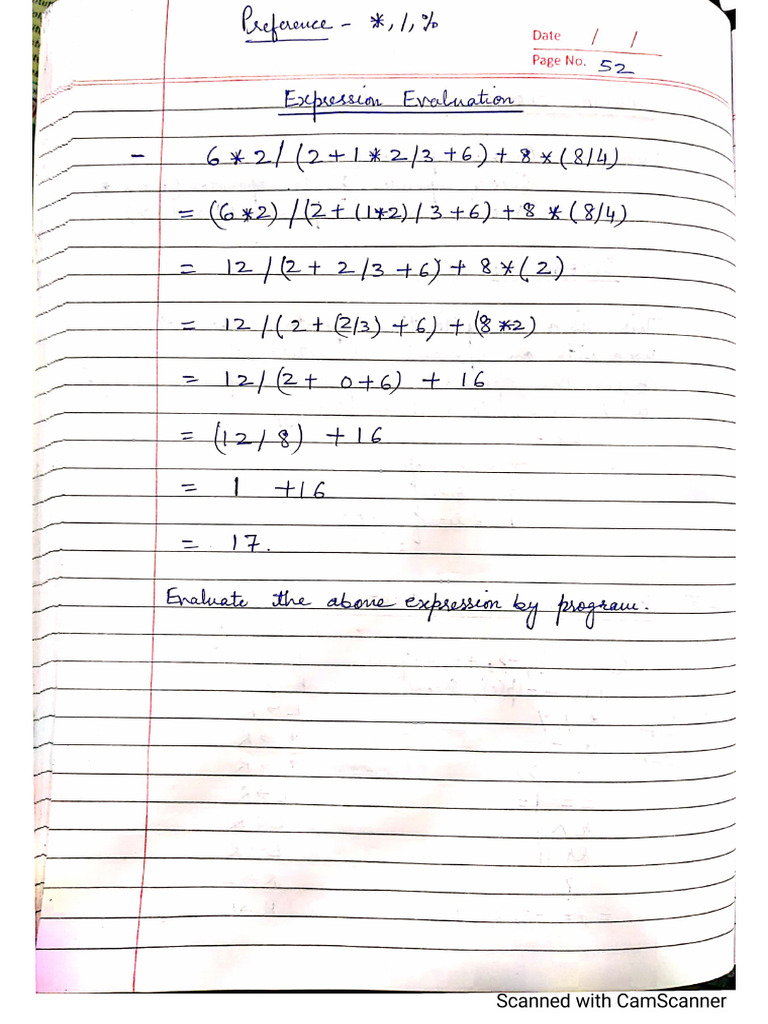 Preference - *, /, %
Date / /
Page No. 52
Expression Evaluation
- 6 * 2 / (2 + 1 * 2 / 3 + 6) + 8 * (8/4)
= (6 * 2) / (2 + (1*2) / 3 + 6) + 8 * (8/4)
= 12 / (2 + 2/3 + 6) + 8 * (2)
= 12 / (2 + (2/3) + 6) + (8 * 2)
= 12 / (2 + 0 + 6) + 16
= (12 / 8) + 16
= 1 + 16
= 17.
Evaluate the above expression by program.
Scanned with CamScanner